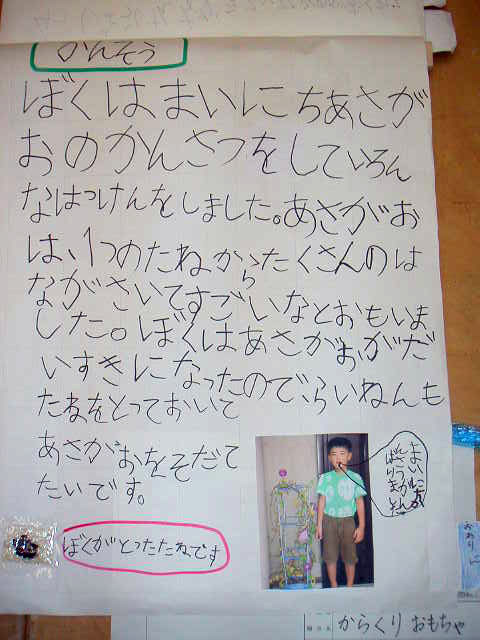 かんそう
ぼくはまいにちあさが
おのかんさつをしていろん
なはっけんをしました。あさがお
は、1つのたねからたくさんのは
ながさいてすごいなとおもいま
した。ぼくはあさがおがだ
いすきになったので、らいねんも
たねをとっておいて
あさがおをそだて
たいです。
ぼくがとったたねです
からくりおもちゃ